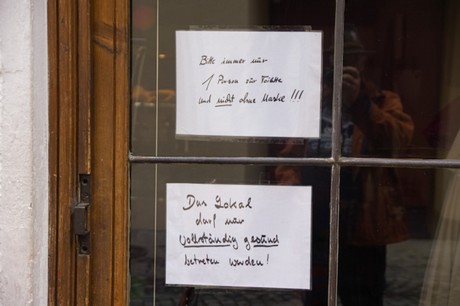 Bitte immer nur
1 Person zur Toilette
und nicht ohne Maske !!!
Das Lokal
darf nur
vollständig gesund
betreten werden!